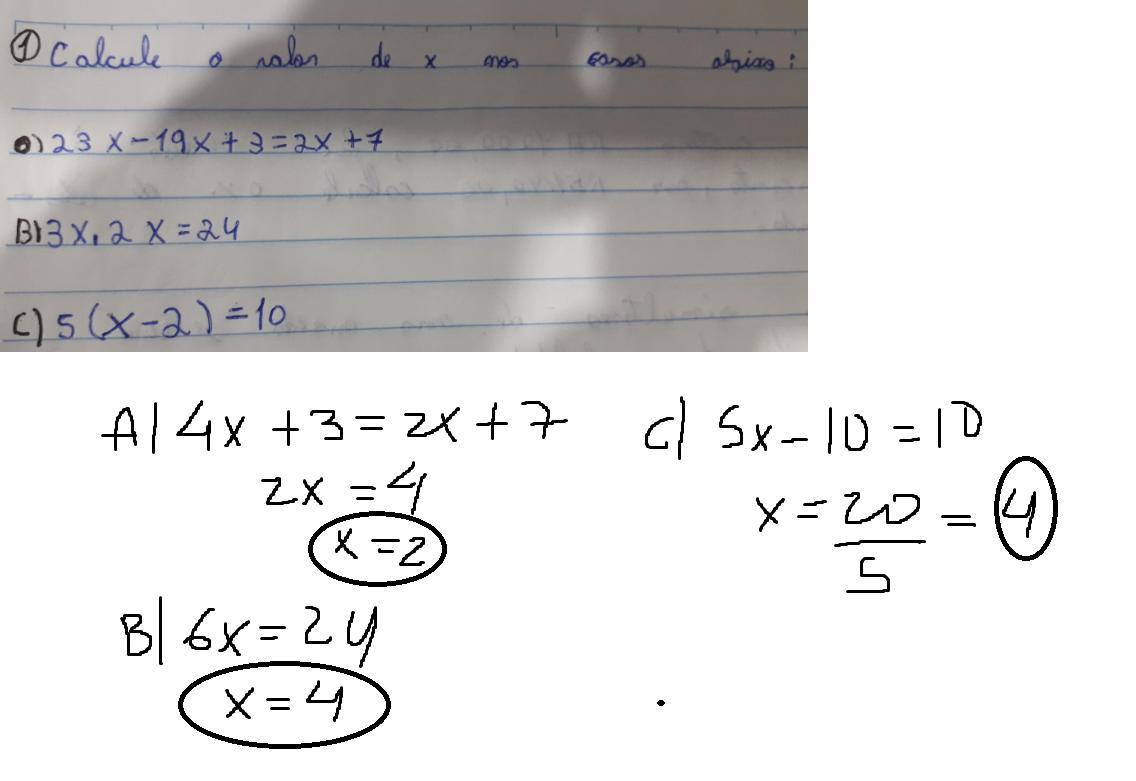 ① Calcule o valor de x nos casos abaixo:
a) 23x-19x+3=2x+7
B) 3x.2x=24
C) 5(x-2)=10
A| 4x+3=2x+7
2x=4
x=2
B| 6x=24
x=4
C| 5x-10=10
x=20/5=4